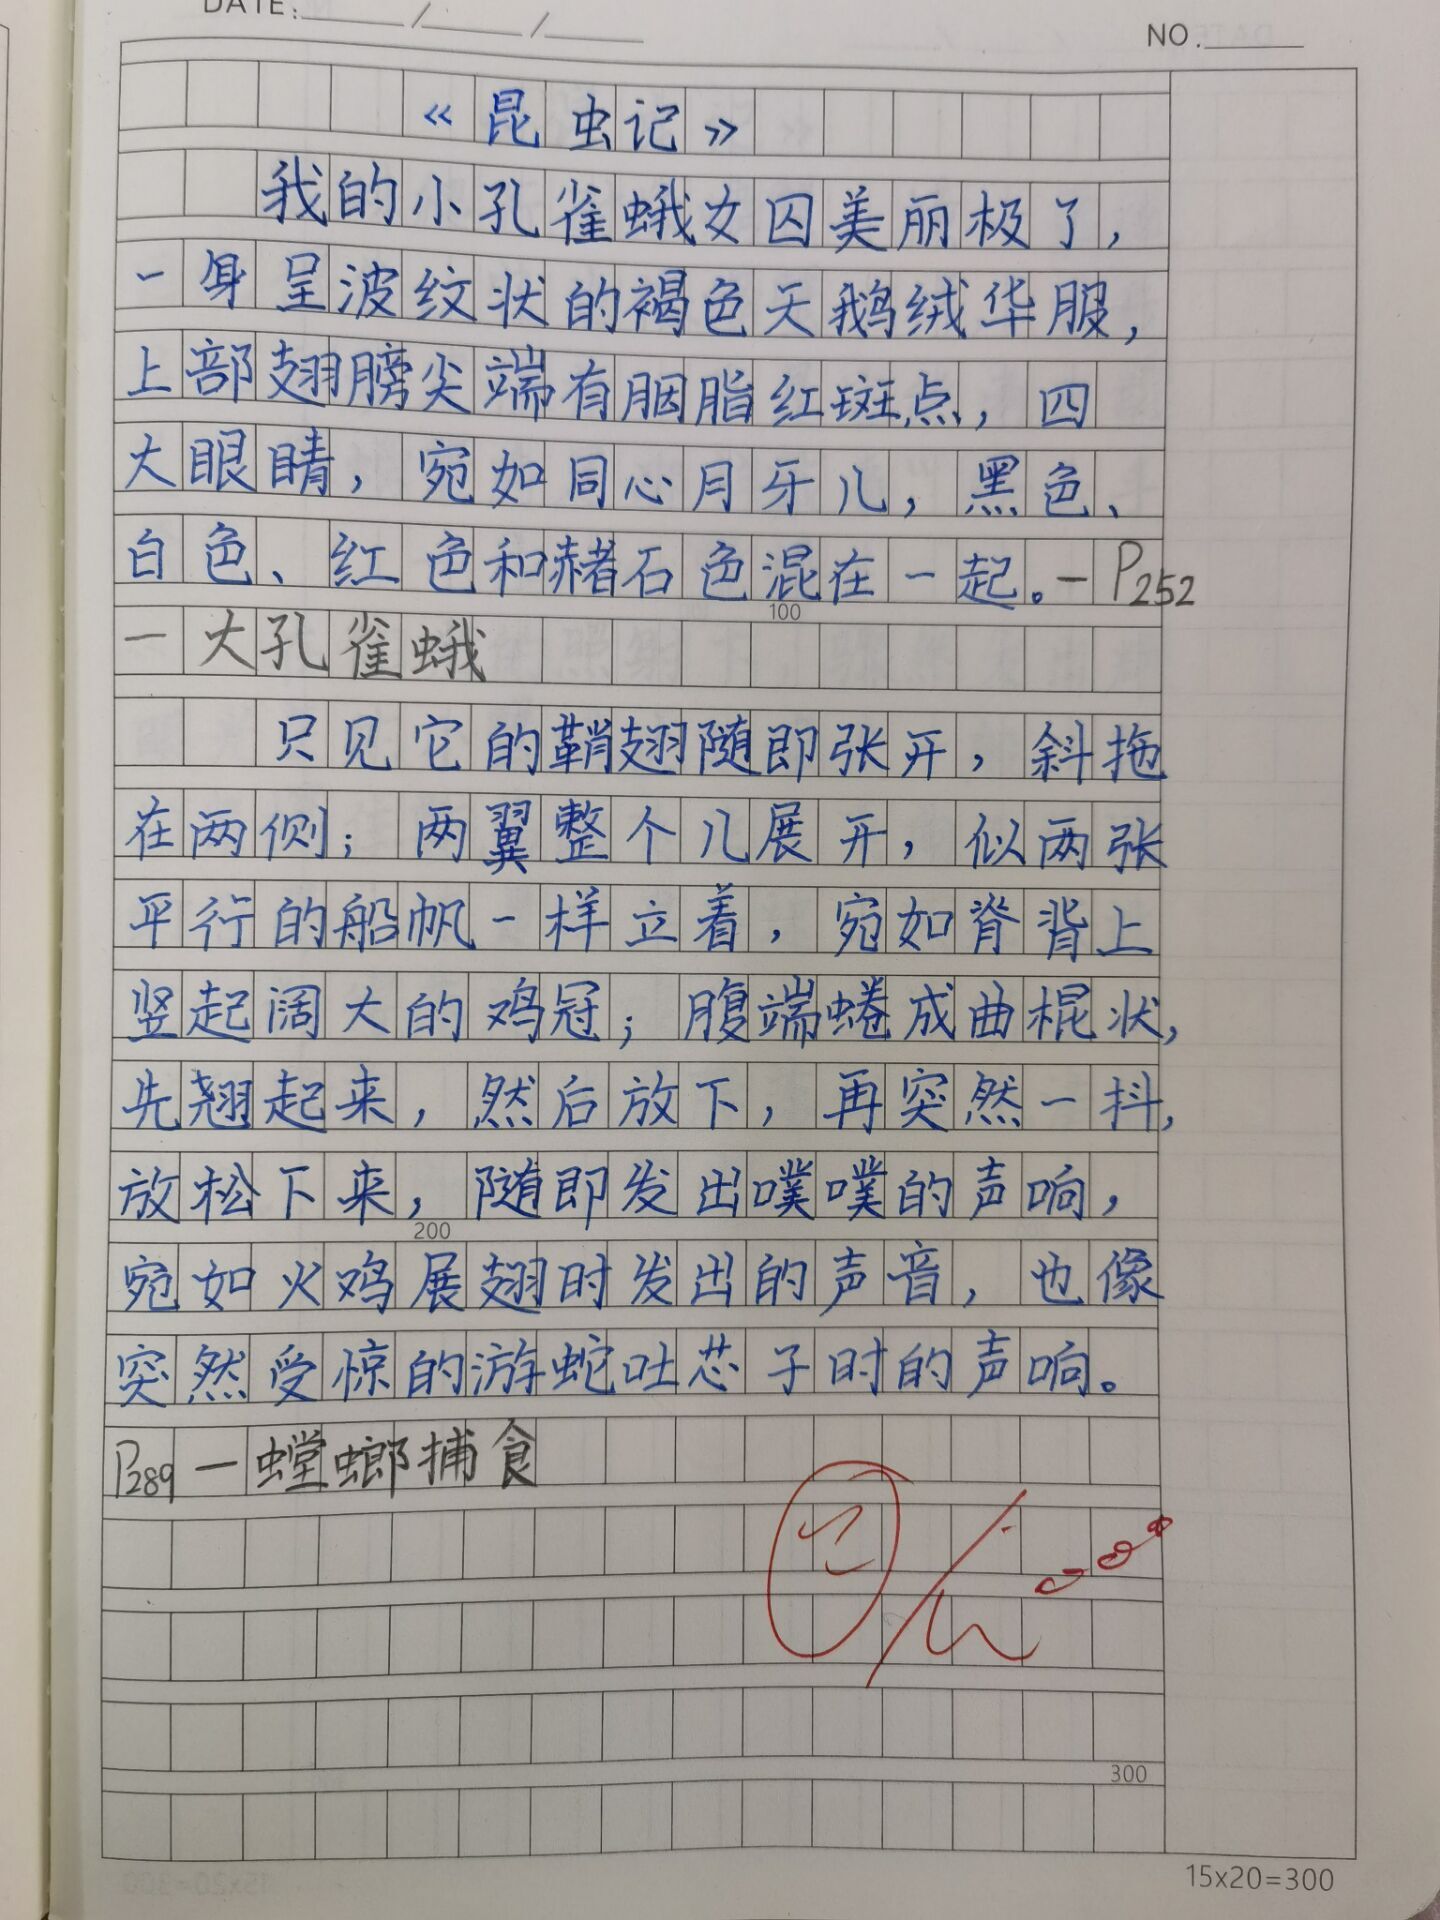 DATE: / /
NO.
《昆虫记》
我的小孔雀蛾女囚美丽极了，
一身呈波纹状的褐色天鹅绒华服，
上部翅膀尖端有胭脂红斑点，四
大眼睛，宛如同心月牙儿，黑色、
白色、红色和赭石色混在一起。—P252
100
一大孔雀蛾
只见它的鞘翅随即张开，斜拖
在两侧；两翼整个儿展开，似两张
平行的船帆一样立着，宛如脊背上
竖起阔大的鸡冠；腹端蜷成曲棍状，
先翘起来，然后放下，再突然一抖，
放松下来，随即发出噗噗的声响，
200
宛如火鸡展翅时发出的声音，也像
突然受惊的游蛇吐芯子时的声响。
P289—螳螂捕食
300
15x20=300